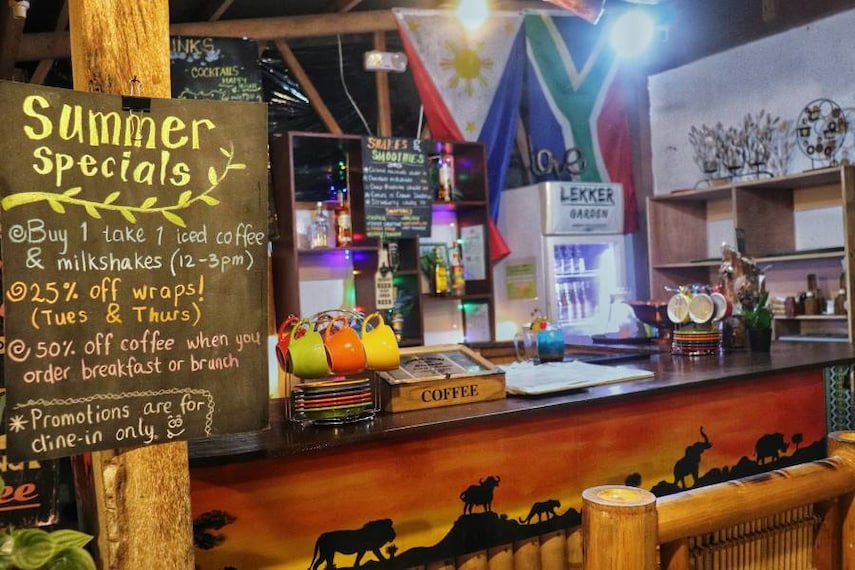 Summer
specials
Buy 1 take 1 iced coffee
& milkshakes (12-3pm)
25% off wraps!
(Tues & Thurs)
50% off coffee when you
order breakfast or brunch
* Promotions are for
dine-in only.
COCKTAILS
HAPPY
SHAKES &
SMOOTHIES
love
LEKKER
GARDEN
COFFEE